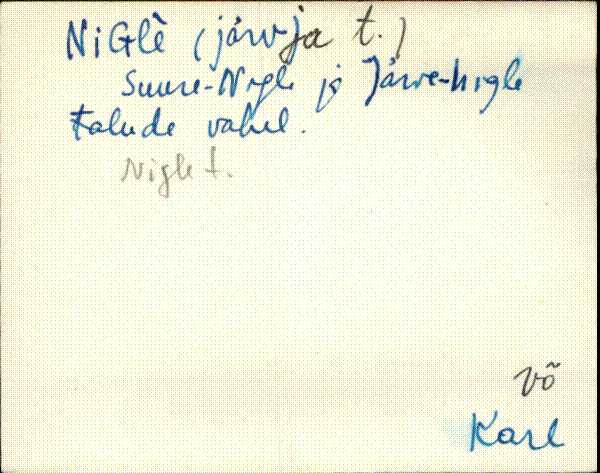 NiGlè (järv ja t.)
Suure-Nigle ja Järve-nigle
talude vahel.
Nigle t.
Võ
Karl